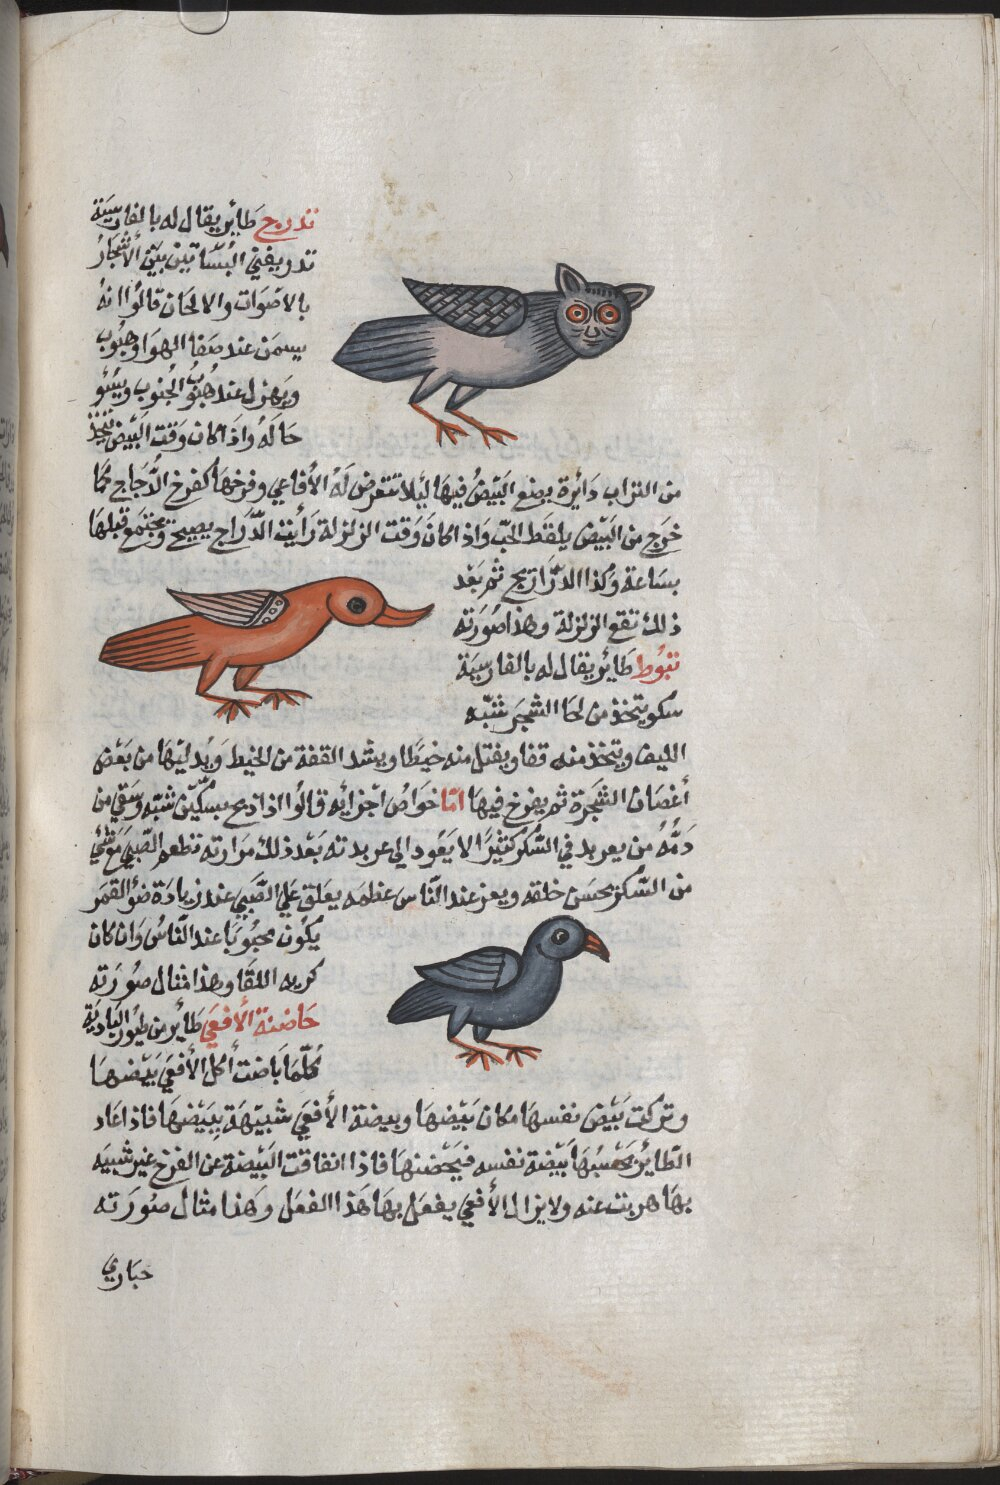 تدرج طَائر يقال له بالفارسيَة
تدر يغني البُسَّاتين بَيْن الأشجَارُ
بالاصَوَات والالحَان قالوُا انهُ
يسمَن عند صَفا الهوَا وهبُوب
ويَهزل عند هُبوُبُ الجُنوب ويسُؤ
حَالهُ واذَا كان وَقت البَيْض يتخذ
من التراب دَائرة يضع البَيْضُ فيهَا لئلا تتَعرض لَهُ الأفاعي وفرخهَا كفرخ الدَّجَاج كما
خرَج من البَيْض يلقَط الحَبّ وَاذا كانَ وَقت الزلزلة رَأيت الدّرَاج يصيح ويجتمَع قبلهَا
بسَاعة وَكذا الدَّرَاريج ثم بَعْد
ذلك تقع الزلزلة وهذا صُورَته
تنوُط طَائر يقال له بالفارسيَة
سكو يتخذ من لحَا الشجَر شبّه
الليف ويتخذ منه قفا ويفتل منه خيطًا ويشد القفة من الخيط وَيُدليْهَا من بَعْض
أغصَان الشجَرة ثم يفرخ فيهَا امّا خوَاصُ اجزائه قالوُا اذا ذبح بسكيّن شبّه وَسَقي من
دَمُّهُ من يعربد في السُّكر كثيرًا لا يَعُود الي عربدته بَعْد ذلك مرَارته تطعم الصَّبي مَع شئ
من السّكر يحسَن خلقه ويعز عند النَّاسَ عظمَه يعَلق عَلي الصَّبي عند زيادَة ضؤ القمَر
يكوُن محبُوبًا عند النَّاسُ وَان كان
كريه اللقَا وهذا مثال صُورَته
حَاضنة الأفعَي طَائر من طيُور البَادية
كلّمَا بَاضت أكل الأفعَي بَيْضهَا
وتركت بَيْض نفسهَا مكان بَيْضهَا وبيضة الأفعَي شبيْهَة بِبَيْضهَا فاذا عَاد
الطّائر يحْسبُهَا بَيْضة نفسه فيَحْضنهَا فاذا انفاقت البَيْضة عن الفرخ غير شبيَه
بهَا هربت عنه ولا يزال الأفعَي يفعَل بهَا هَذا الفعَل وهَذا مثال صُورَته
حبَاري